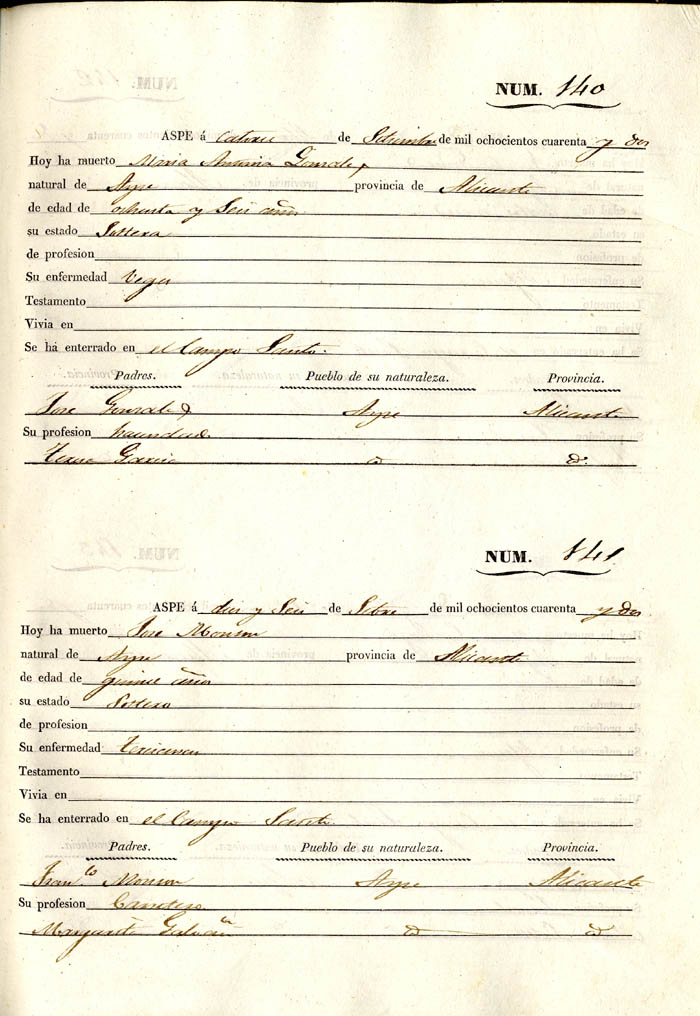 NUM. 140
ASPE á catorce de Setiembre de mil ochocientos cuarenta y dos
Hoy ha muerto Maria Antonia Gonzalez
natural de Aspe provincia de Alicante
de edad de ochenta y Seis años
su estado Soltera
de profesion
Su enfermedad Vegez
Testamento
Vivia en
Se há enterrado en el Campo Santo.
Padres. Pueblo de su naturaleza. Provincia.
Jose Gonzalez Aspe Alicante
Su profesion
Garcia d d.
NUM. 141
ASPE á diez y Seis de Setbre de mil ochocientos cuarenta y dos
Hoy ha muerto Jose Monzon
natural de Aspe provincia de Alicante
de edad de quince años
su estado Soltero
de profesion
Su enfermedad
Testamento
Vivia en
Se ha enterrado en el Campo Santo
Padres. Pueblo de su naturaleza. Provincia.
Franco Monzon Aspe Alicante
Su profesion
Margarita d d